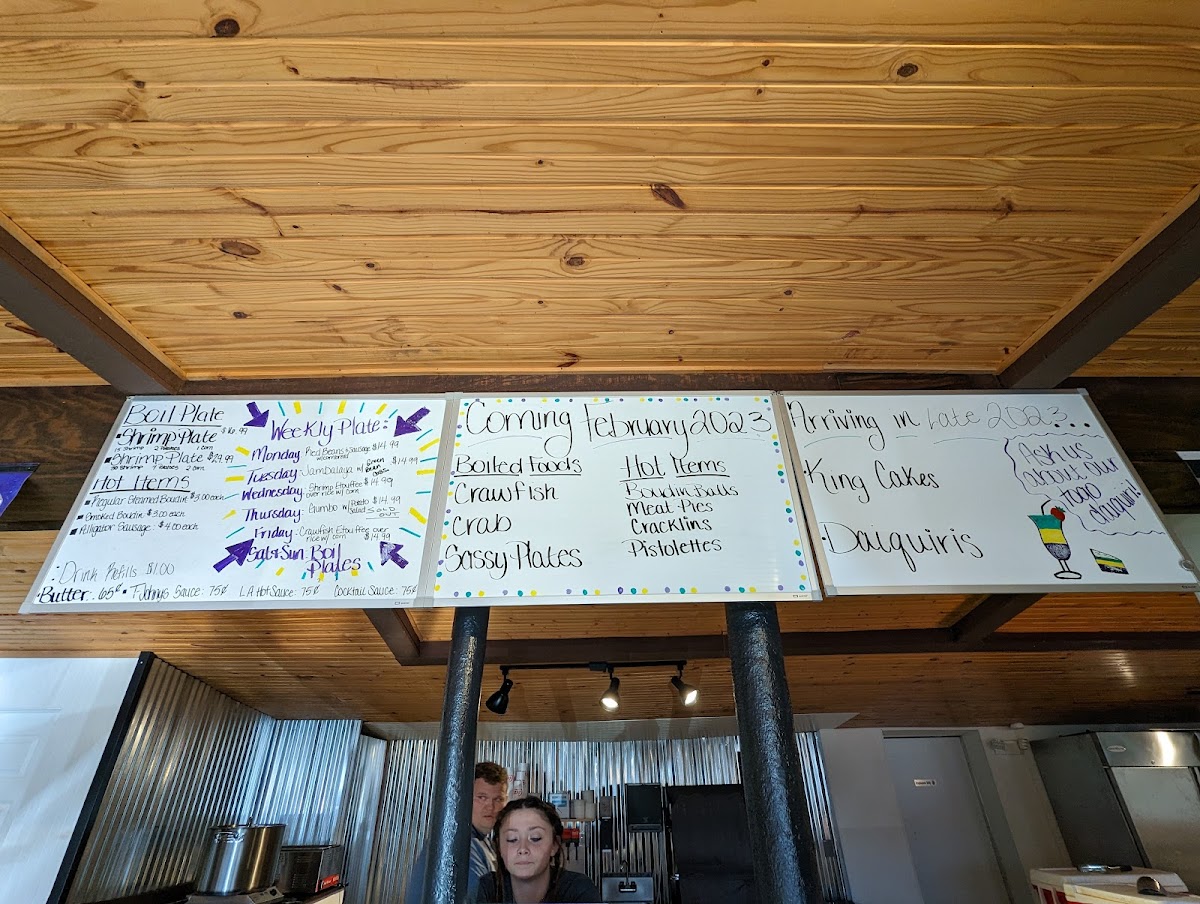 Boil Plate
Shrimp Plate $16.99
15 Shrimp 2 Potatoes 1 Corn
Shrimp Plate $29.99
Hot Items
Regular Steamed Boudin $3.00 each
Smoked Boudin $3.00 each
Alligator Sausage: $4.00 each
Drink Refills $1.00
Weekly Plate:
Monday: Red Beans & Sausage $14.99
w/cornbread
Tuesday: Jambalaya w/ Green Bean $14.99
Wednesday: Shrimp Etouffee $14.99
over rice w/ corn
Thursday: Gumbo w/ Potato Salad $14.99
SOLD OUT
Friday: Crawfish Etouffee over
rice w/ corn $14.99
Sat & Sun: Boil
Plates
Butter: .65¢ T-Johnys Sauce: 75¢ LA Hot Sauce: 75¢ Cocktail Sauce: 75¢
Coming February 2023
Boiled Foods
Crawfish
Crab
Sassy Plates
Hot Items
Boudin Balls
Meat Pies
Cracklins
Pistolettes
Arriving in late 2023...
King Cakes
Daiquiris
Ask us
about our
daiquiri!